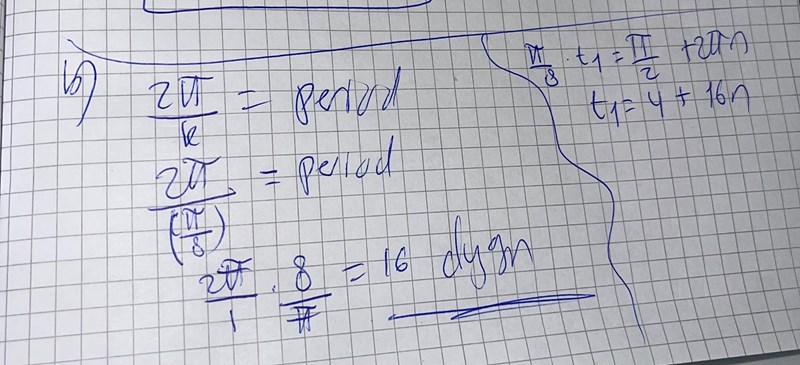 b)
2π/k = period
2π/(π/8) = period
2π/1 · 8/π = 16 dygn
π/8 · t₁ = π/2 + 2πn
t₁ = 4 + 16n